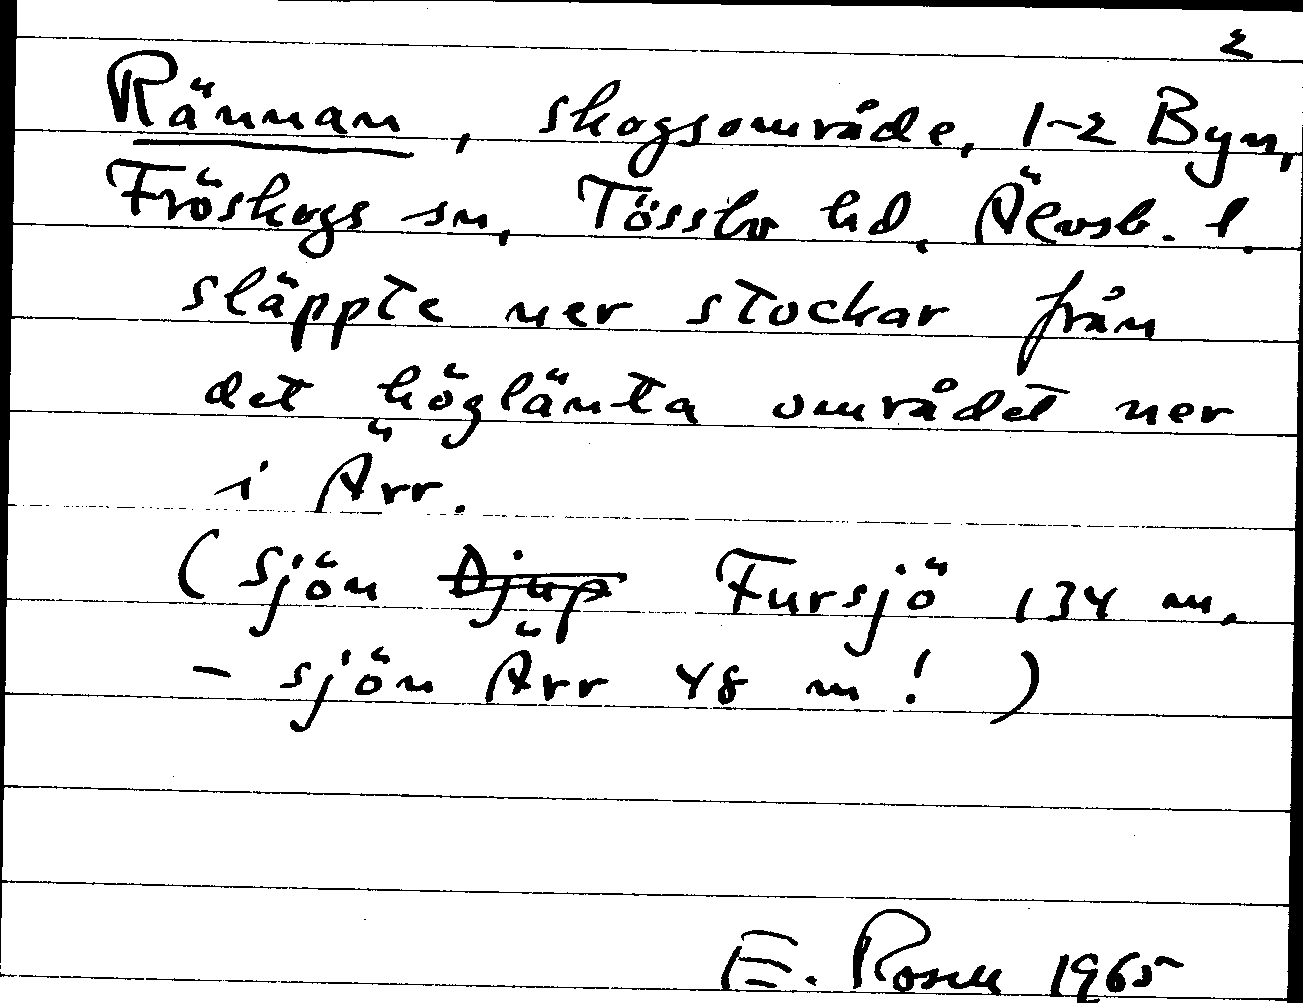 2
Rännan, skogsområde, 1-2 Byn,
Fröskogs sn, Tössbo hd, Älvsb. l.
släppte ner stockar från
det höglänta området ner
i Ärr.
(sjön Djup Fursjö 134 m,
- sjön Ärr 48 m! )
E. Rosell 1965